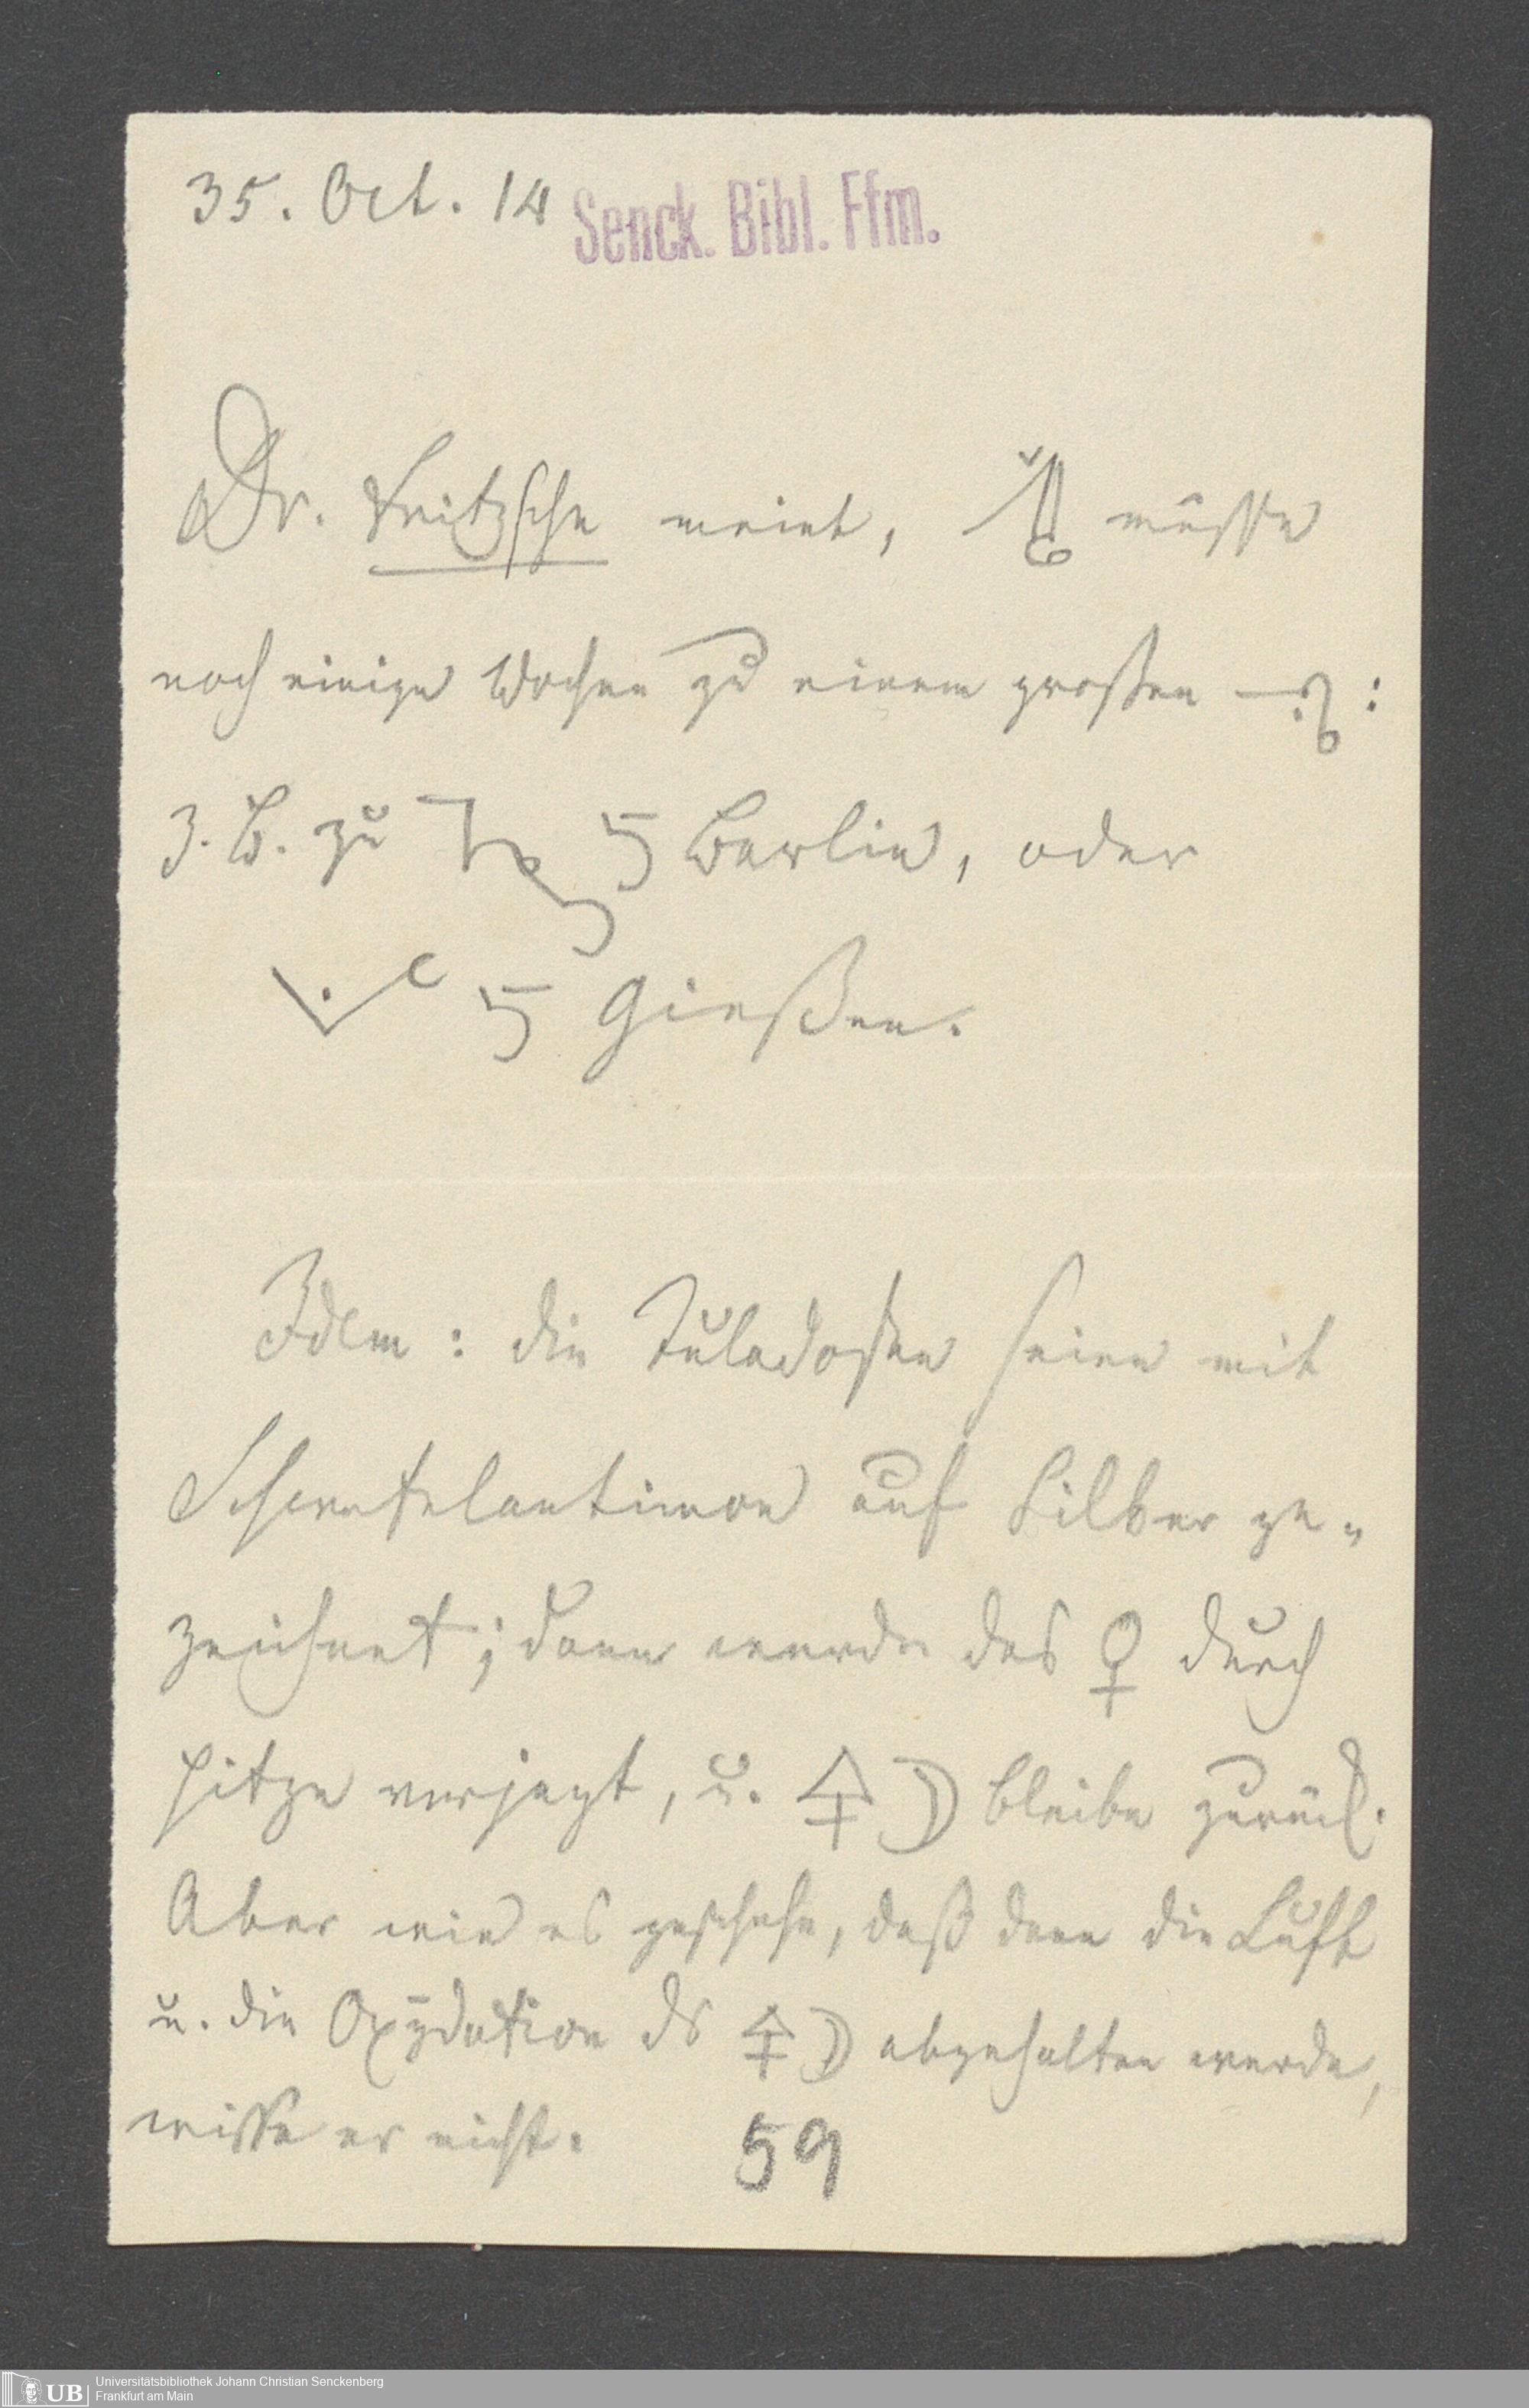 35. Oct. 14 Senck. Bibl. Ffm.
Dr. Fritzsche meint, müsse
noch einige Wochen zu einem großen :
z. B. zu Berlin, oder
Gießen.
Idem : die Tuladosen seien mit
Schwefelantimon auf Silber ge-
zeichnet ; dann werde das ♀ durch
Hitze verjagt, u. 🜍 ☽ bleibe zurück.
Aber wie es geschehe, daß dann die Luft
u. die Oxydation ds 🜍 ☽ abgehalten werde,
wisse er nicht. 59
UB Universitätsbibliothek Johann Christian Senckenberg
Frankfurt am Main